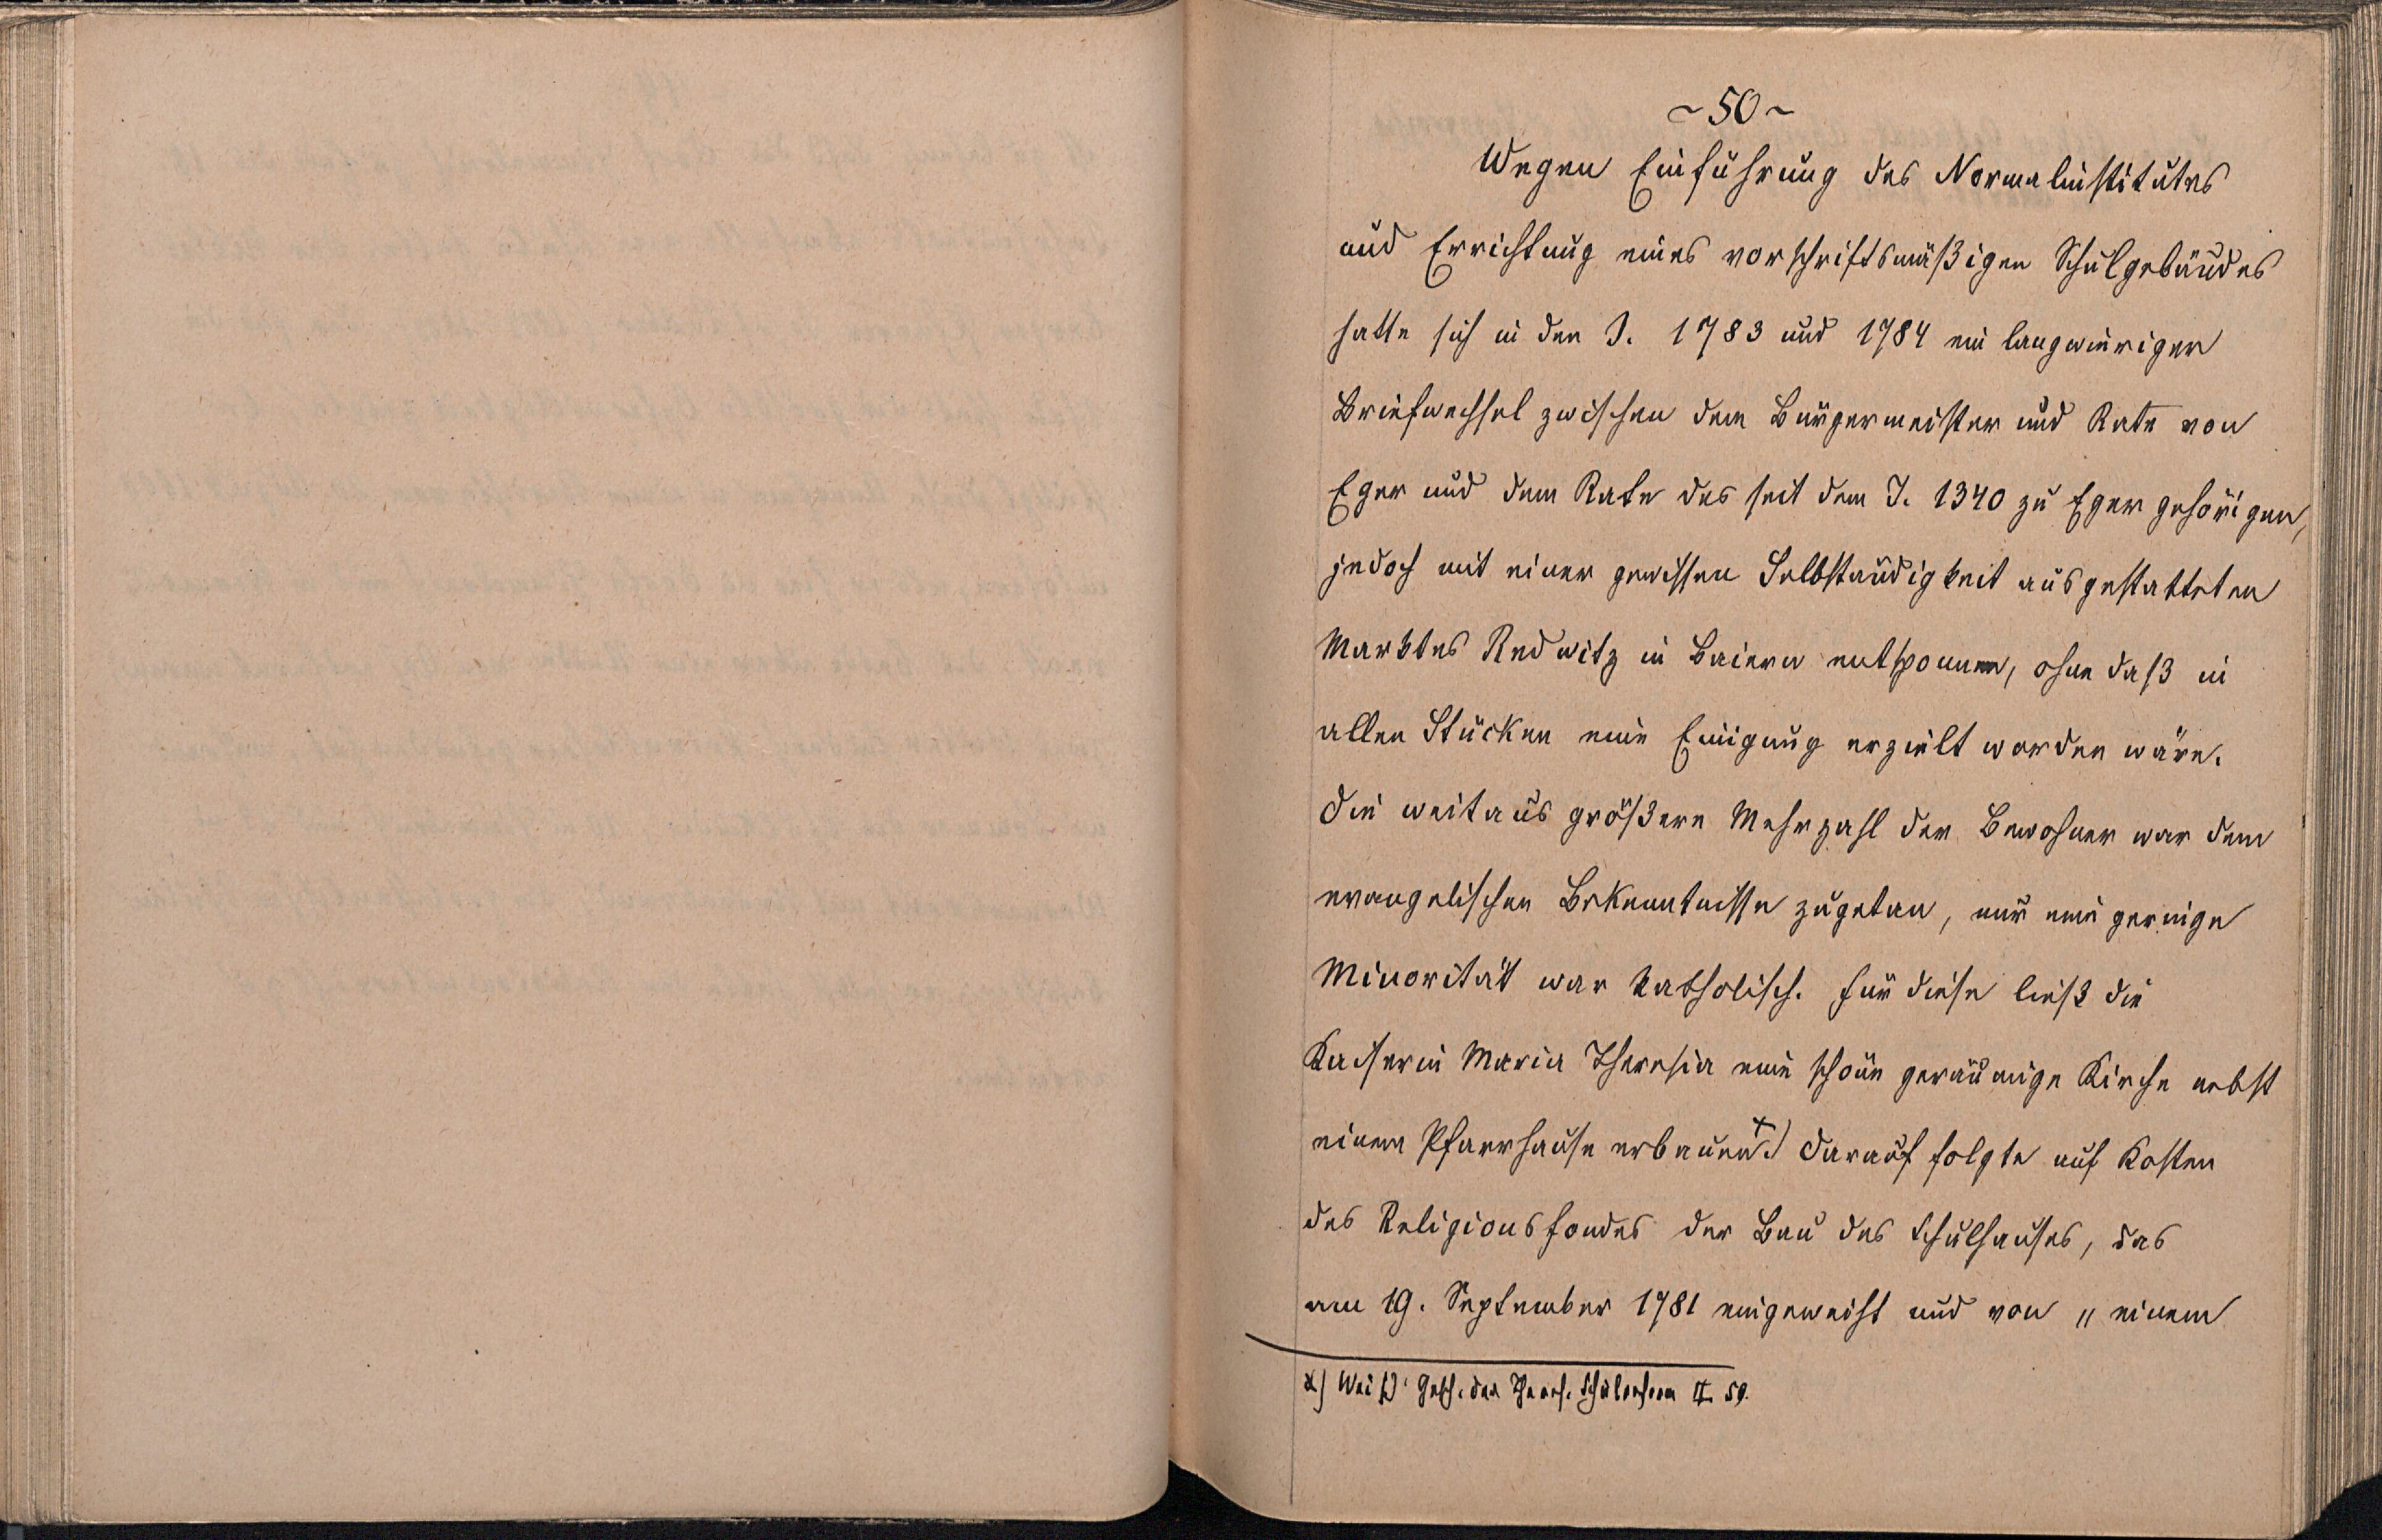 ~ 50 ~
Wegen Einführung des Normalinstitutes
und Errichtung eines vorschriftsmäßigen Schulgebäudes
hatte sich in den J. 1783 und 1784 ein langwieriger
Briefwechsel zwischen dem Bürgermeister und Rate von
Eger und dem Rate des seit dem J. 1340 zu Eger gehörigen,
jedoch mit einer gewissen Selbständigkeit ausgestatteten
Marktes Redwitz in Baiern entsponnen, ohne daß in
allen Stücken eine Einigung erzielt worden wäre.
Die weitaus größere Mehrzahl der Bewohner war dem
evangelischen Bekenntnisse zugetan, nur eine geringe
Minorität war katholisch. Für diese ließ die
Kaiserin Maria Theresia eine schöne geräumige Kirche nebst
einem Pfarrhause erbauen.x) Darauf folgte auf Kosten
des Religionsfondes der Bau des Schulhauses, das
am 19. September 1781 eingeweiht und von „einem
x) Weiß: Gesch. der Schulreform II. 59.